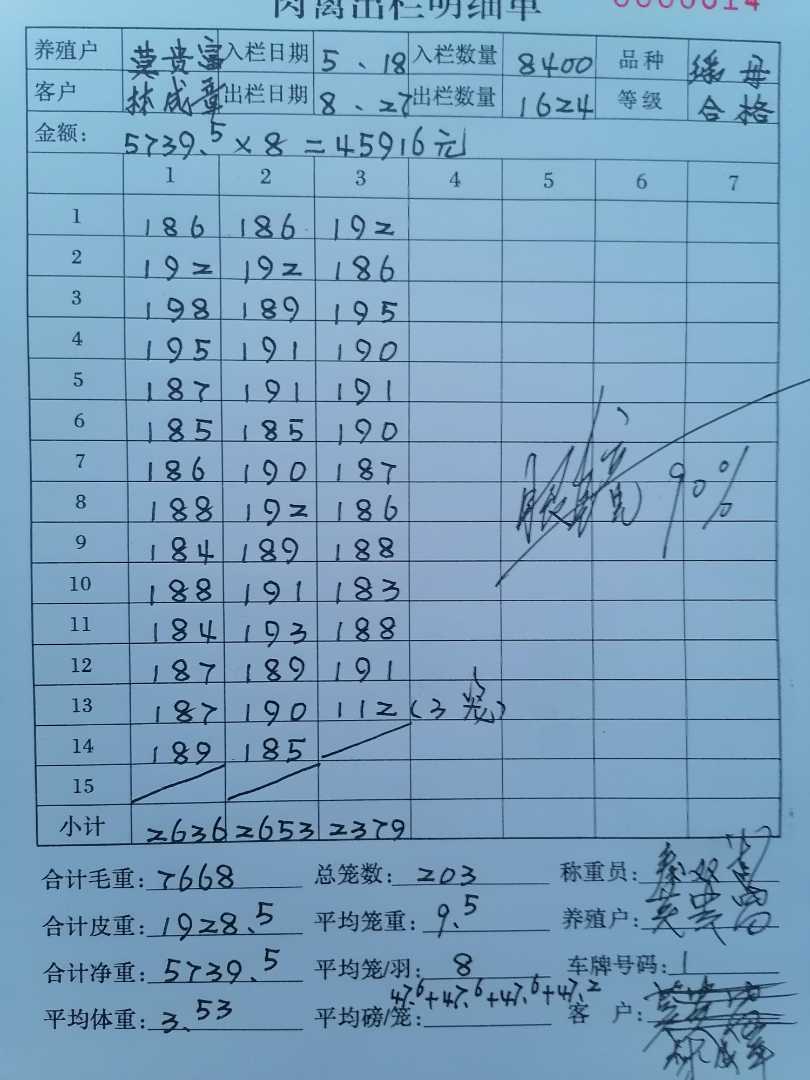 肉禽出栏明细单 0000014
养殖户 莫贵富 入栏日期 5、18 入栏数量 8400 品种 瑶母
客户 林成章 出栏日期 8、27 出栏数量 1624 等级 合格
金额: 5739.5 × 8 = 45916元
1 2 3 4 5 6 7
1 186 186 192
2 192 192 186
3 198 189 195
4 195 191 190
5 187 191 191
6 185 185 190
7 186 190 187 90%
8 188 192 186
9 184 189 188
10 188 191 183
11 184 193 188
12 187 189 191
13 187 190 112 (3笼)
14 189 185
15
小计 2636 2653 2379
合计毛重: 7668 总笼数: 203 称重员:
合计皮重: 1928.5 平均笼重: 9.5 养殖户: 莫贵富
合计净重: 5739.5 平均笼/羽: 8 车牌号码: 1
平均体重: 3.53 平均磅/笼: 47.6+47.6+47.6+47.2 客 户: 林成章